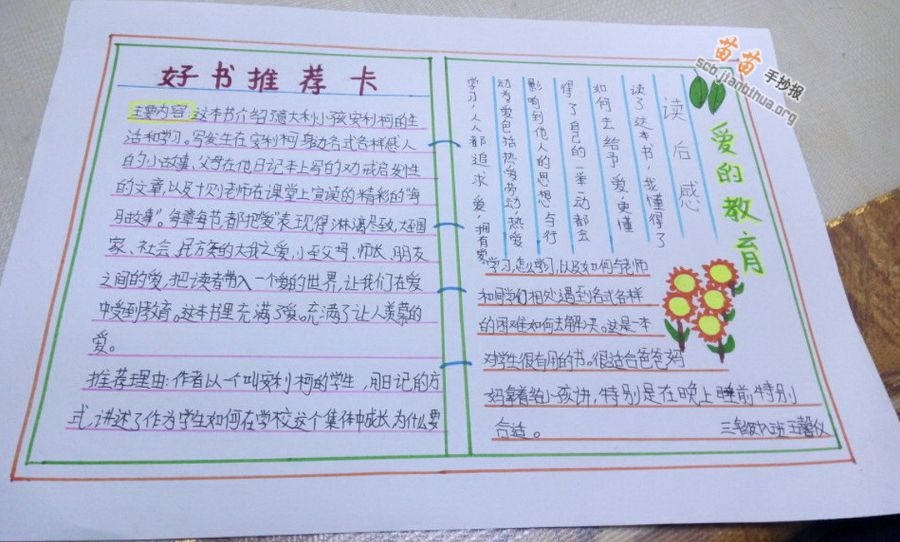 好书推荐卡
主要内容:这本书介绍了意大利小孩安利柯的生
活和学习。写发生在安利柯身边各式各样感人
的小故事、父母在他日记本上写的劝戒启发性
的文章,以及十则老师在课堂上宣读的精彩的"每
月故事"。每章每节都把"爱"表现得淋漓尽致,大至国
家、社会、民族的大我之爱,小至父母、师长、朋友
之间的爱,把读者带入一个爱的世界,让我们在爱
中受到教育。这本书里充满了爱。充满了让人羡慕的
爱。
推荐理由:作者以一个叫安利柯的学生,用日记的方
式,讲述了作为学生如何在学校这个集体中成长为什么要
学习,怎么学习,以及如何与老师
和同学们相处遇到各式各样
的困难如何去解决。这是一本
对学生很有用的书。很适合爸爸妈
妈拿着给小孩讲,特别是在晚上睡前,特别
合适。
爱的教育
读后感
读了这本书,我懂得了
如何去给予爱,更懂
得了自己的一举一动都会
影响到他人的思想与行
动为爱包括热爱劳动,热爱
学习,人人都追求爱,拥有爱
三年级八班王馨仪
苗苗手抄报
scb.jianghua.org